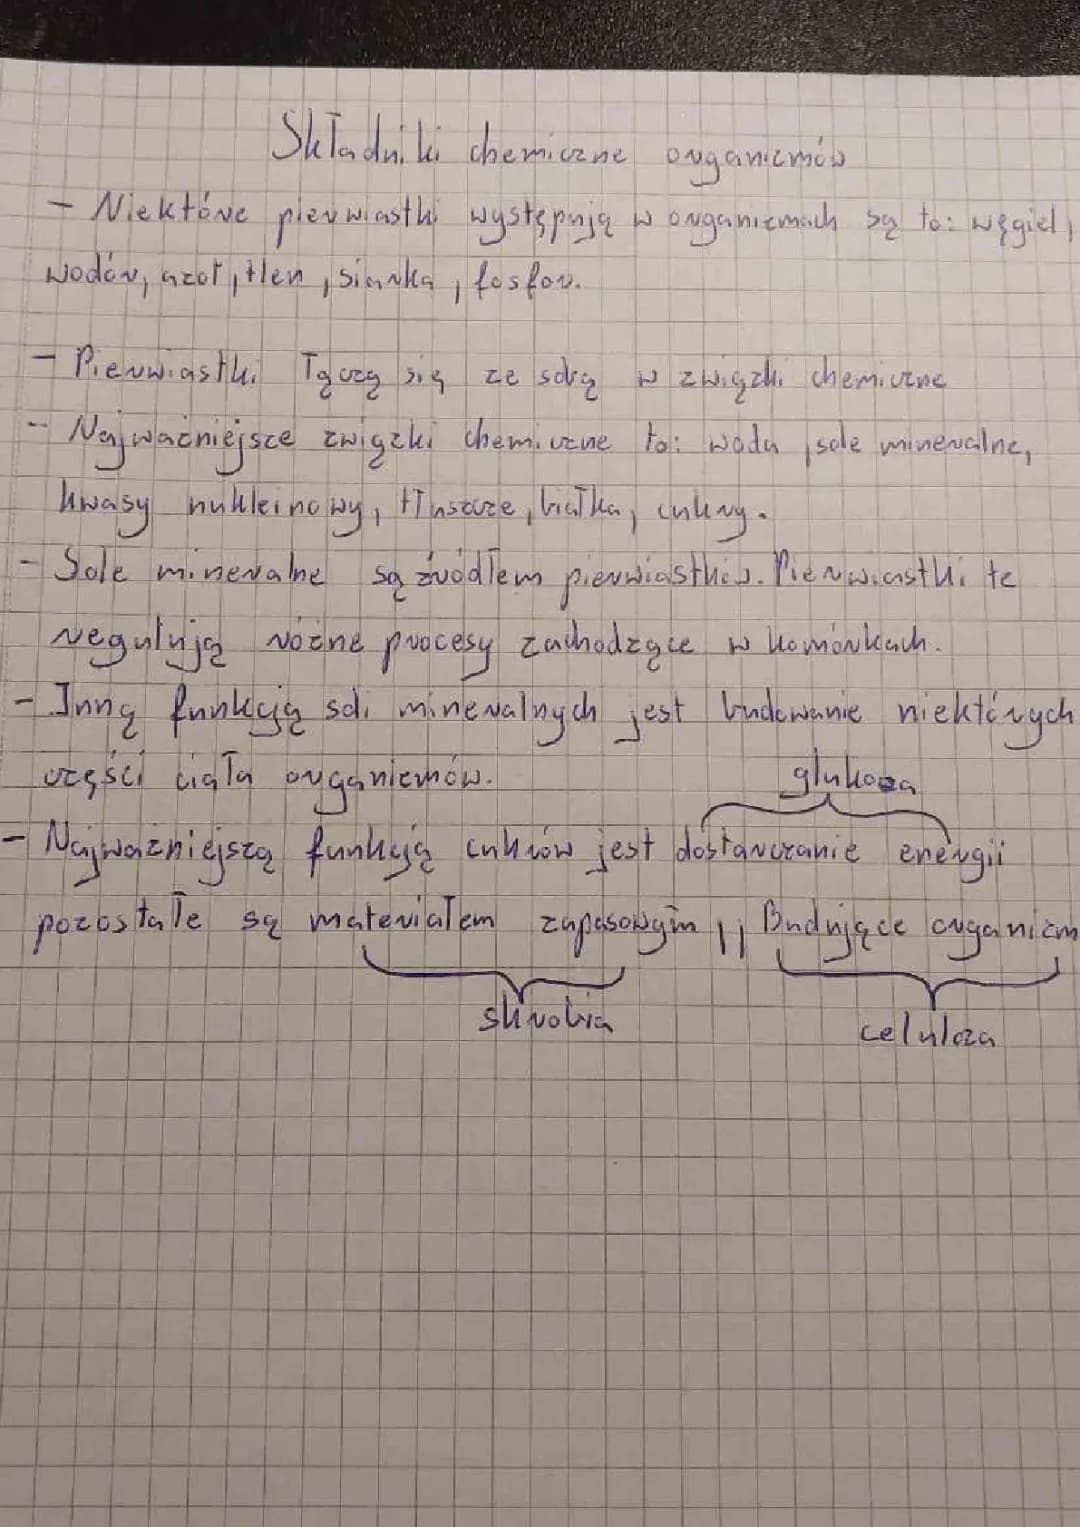 Składniki chemiczne organizmów
- Niektóre pierwiastki występują w organizmach są to: węgiel,
wodór, azot, tlen, siarka, fosfor.
- Pierwiastki łączą się ze sobą w związki chemiczne
- Najważniejsze związki chemiczne to: woda, sole mineralne,
kwasy nukleinowy, tłuszcze, białka, cukry.
- Sole mineralne są źródłem pierwiastków. Pierwiastki te
regulują różne procesy zachodzące w komórkach.
- Inną funkcją soli mineralnych jest budowanie niektórych
części ciała organizmów.
glukoza
- Najważniejszą funkcją cukrów jest dostarczanie energii
pozostałe są materiałem zapasowym,, Budujące organizm
skrobia
celuloza